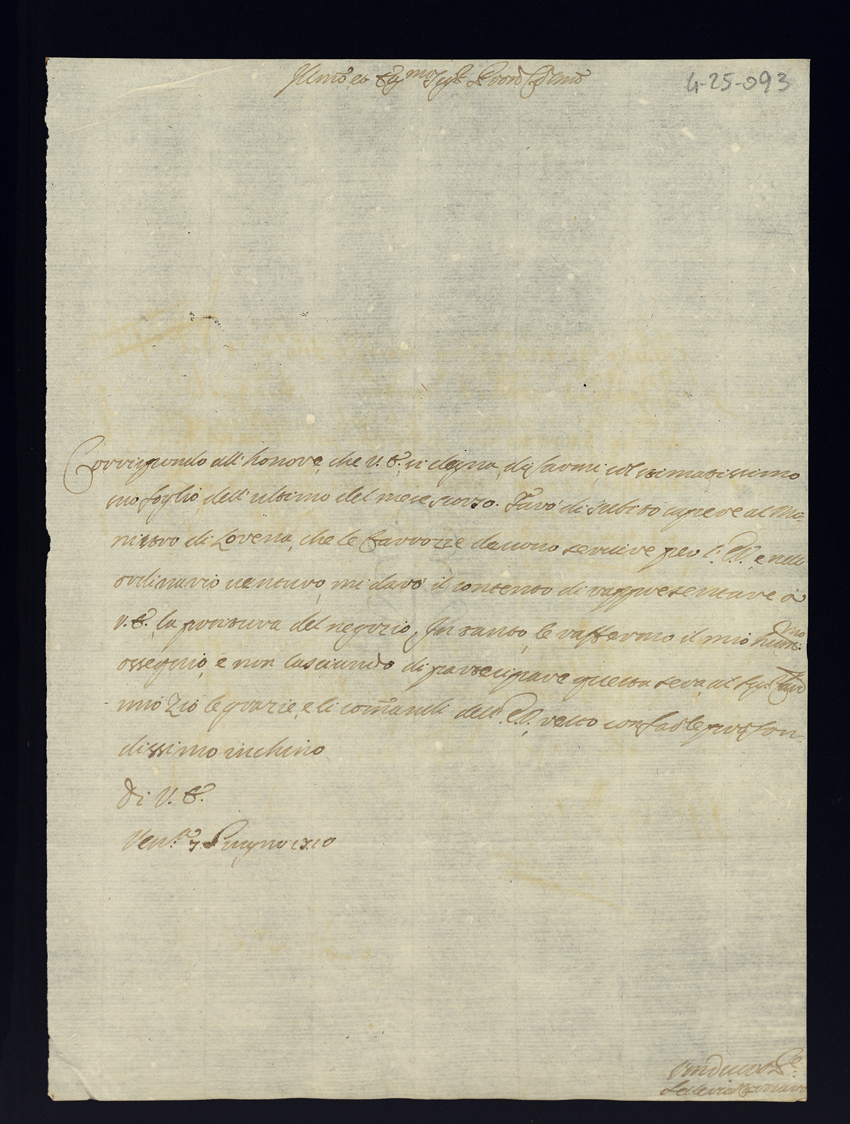 Ill.mo et Ecc.mo Sig.r Pron Col.mo
4-25-093
Corrispondo all'honore, che V. E. si degna di farmi col stimatissimo
suo foglio dell'ultimo del mese scorso. Farò di subito sapere al Ma-
nistro di Lovena, che le Carrozze devono servire per l'E. V., e nell'
ordinario venturo, mi darò il contento di rappresentare à
V. E. la positura del negozio. In tanto le raffermo il mio humil.mo
ossequio, e non lasciando di partecipare questa sera al Sig.r
mio Zio le grazie, e li comandi dell'E. V., resto con farle profon-
dissimo inchino
Di V. E.
Ven.a 7. Giugno 1710